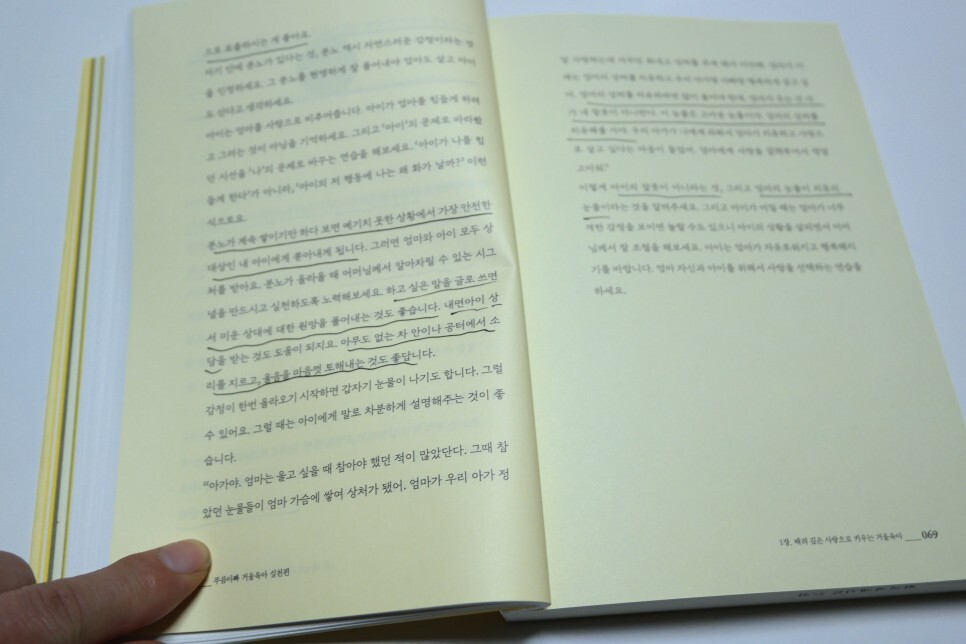 으로 표출하시는 게 좋아요.
자기 안에 분노가 있다는 것, 분노 역시 자연스러운 감정이라는 것
을 인정하세요. 그 분노를 현명하게 잘 풀어내야 엄마도 살고 아이
도 산다고 생각하세요.
아이는 엄마를 사랑으로 비추어줍니다. 아이가 엄마를 힘들게 하려
고 그러는 것이 아님을 기억하세요. 그리고 '아이'의 문제로 바라봤
던 시선을 '나'의 문제로 바꾸는 연습을 해보세요. '아이가 나를 힘
들게 한다'가 아니라, '아이의 저 행동에 나는 왜 화가 날까?' 이런
식으로요.
분노가 계속 쌓이기만 하다 보면 예기치 못한 상황에서 가장 안전한
대상인 내 아이에게 쏟아내게 됩니다. 그러면 엄마와 아이 모두 상
처를 받아요. 분노가 올라올 때 어머님께서 알아차릴 수 있는 시그
널을 만드시고 실천하도록 노력해보세요. 하고 싶은 말을 글로 쓰면
서 미운 상대에 대한 원망을 풀어내는 것도 좋습니다. 내면아이 상
담을 받는 것도 도움이 되지요. 아무도 없는 차 안이나 공터에서 소
리를 지르고, 울음을 마음껏 토해내는 것도 좋답니다.
감정이 한번 올라오기 시작하면 갑자기 눈물이 나기도 합니다. 그럴
수 있어요. 그럴 때는 아이에게 말로 차분하게 설명해주는 것이 좋
습니다.
"아가야. 엄마는 울고 싶을 때 참아야 했던 적이 많았단다. 그때 참
았던 눈물들이 엄마 가슴에 쌓여 상처가 됐어. 엄마가 우리 아가 정
푸름아빠 거울육아 실천편
고마워."
이렇게 아이의 잘못이 아니라는 것, 그리고 엄마의 눈물이 치유의
눈물이라는 것을 알려주세요. 그리고 아이가 어릴 때는 엄마가 너무
격한 감정을 보이면 놀랄 수도 있으니 아이의 상황을 살피면서 어머
님께서 잘 조절을 해보세요. 아이는 엄마가 자유로워지고 행복해지
기를 바랍니다. 엄마 자신과 아이를 위해서 사랑을 선택하는 연습을
하세요.
1장. 배려 깊은 사랑으로 키우는 거울육아 069